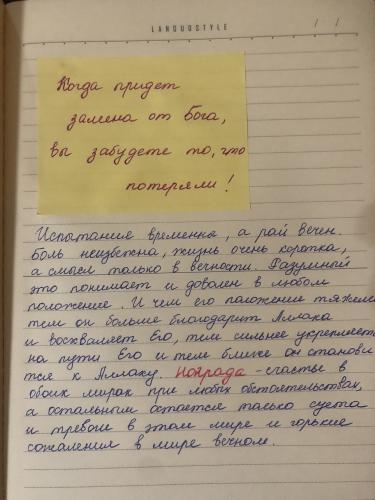 LANQUOSTYLE
/ /
Когда придет
замена от Бога,
вы забудете то, что
потеряли!
Испытания временны, а рай вечен.
Боль неизбежна, жизнь очень коротка,
а смысл только в вечности. Разумный
это понимает и доволен в любом
положение. И чем его положение тяжелее
тем он больше благодарит Аллаха
и восхваляет Его, тем сильнее укрепляется
на пути Его и тем ближе он станови
тся к Аллаху. Награда - счастье в
обоих мирах при любых обстоятельствах,
а остальным остается только суета
и тревога в этом мире и горькие
сожаления в мире вечном.